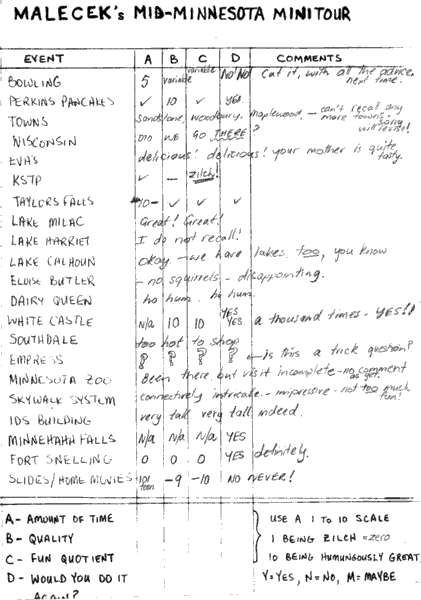 MALECEK's MID-MINNESOTA MINITOUR
EVENT A B C D COMMENTS
BOWLING 5 variable variable NO! NO! Cut it, with all the advice, next time.
PERKINS PANCAKES ✓ 10 ✓ YES
TOWNS Sandstone, woodbury, maplewood, — can't recall any more towns - sorry will revise!
WISCONSIN DID WE GO THERE?
EVA'S delicious! delicious! your mother is quite tasty.
KSTP ✓ — zilch!
TAYLORS FALLS 10- ✓ ✓ ✓
LAKE MILAC Great! Great!
LAKE HARRIET I do not recall!
LAKE CALHOUN Okay - we have lakes too, you know
ELOISE BUTLER - no squirrels - disappointing.
DAIRY QUEEN ho hum. ho hum.
WHITE CASTLE N/A 10 10 YES YES a thousand times - YES!!
SOUTHDALE too hot to shop
EMPRESS ? ? ? ? ← is this a trick question?
MINNESOTA ZOO Been there, but visit incomplete - no comment as yet.
SKYWALK SYSTEM connectively intricate - impressive - not too much fun!
IDS BUILDING very tall very tall indeed.
MINNEHAHA FALLS N/A N/A N/A YES
FORT SNELLING 0 0 0 YES definitely.
SLIDES/HOME MOVIES 101 -9 -10 NO NEVER!
A- AMOUNT OF TIME
B- QUALITY
C- FUN QUOTIENT
D- WOULD YOU DO IT
AGAIN?
USE A 1 TO 10 SCALE
1 BEING ZILCH = zero
10 BEING HUMUNGOUSLY GREAT
Y=YES, N=NO, M=MAYBE